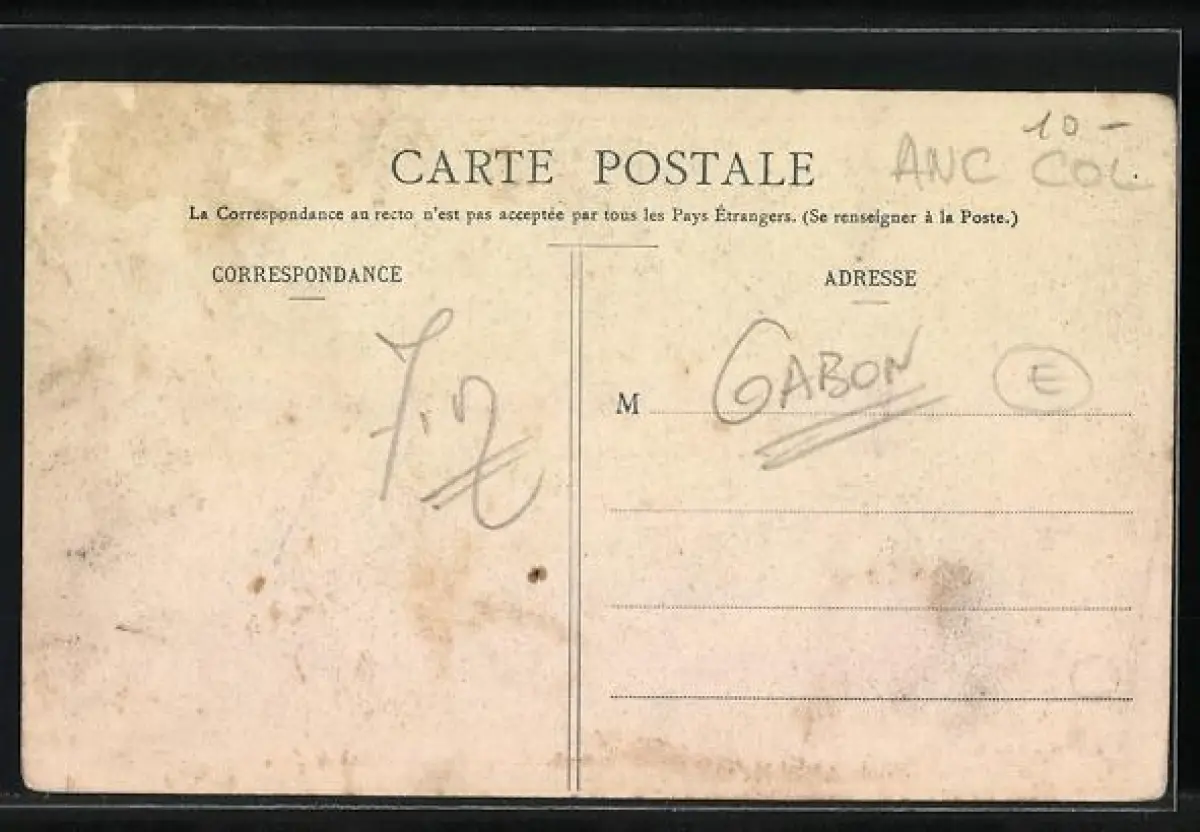 10 -
ANC COL.
CARTE POSTALE
La Correspondance au recto n'est pas acceptée par tous les Pays Étrangers. (Se renseigner à la Poste.)
CORRESPONDANCE
ADRESSE
GABON
E
M